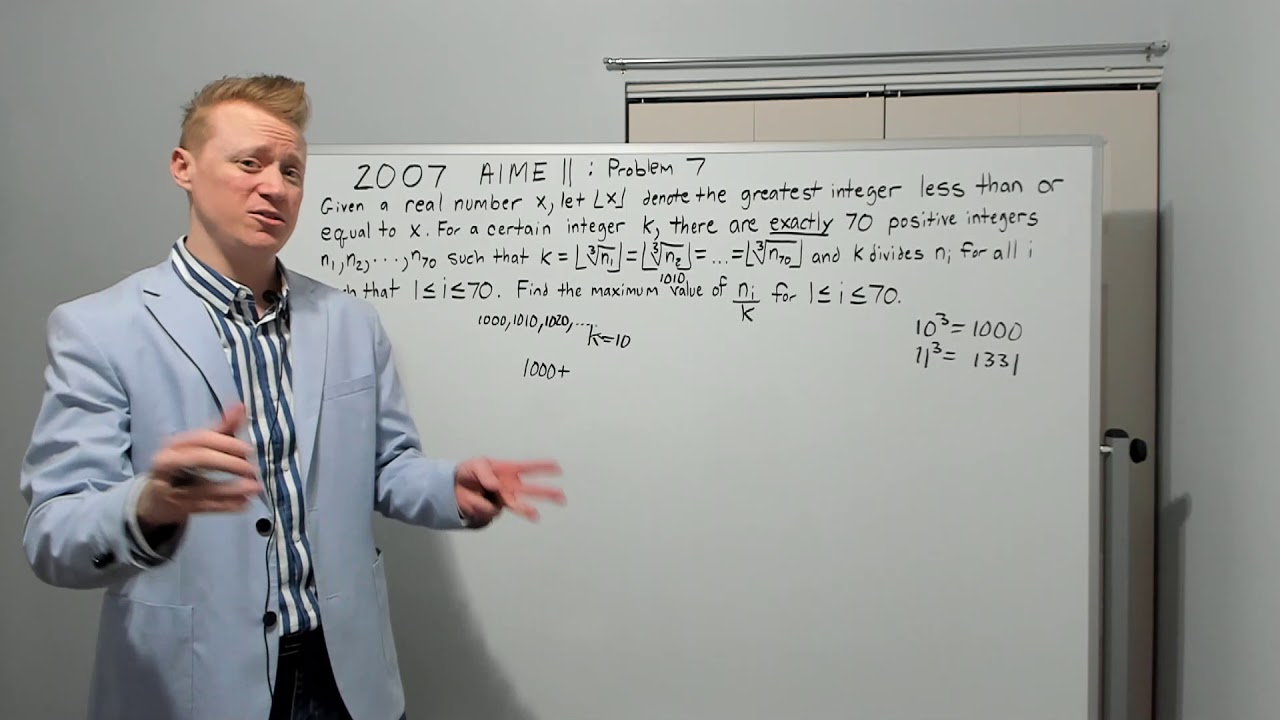 2007 AIME II : Problem 7
Given a real number x, let ⌊x⌋ denote the greatest integer less than or
equal to x. For a certain integer k, there are exactly 70 positive integers
n₁, n₂, ..., n₇₀ such that k = ⌊∛n₁⌋ = ⌊∛n₂⌋ = ... = ⌊∛n₇₀⌋ and k divides nᵢ for all i
that 1 ≤ i ≤ 70. Find the maximum value of nᵢ/k for 1 ≤ i ≤ 70.
1010
1000, 1010, 1020, ...
k=10
1000+
10³ = 1000
11³ = 1331